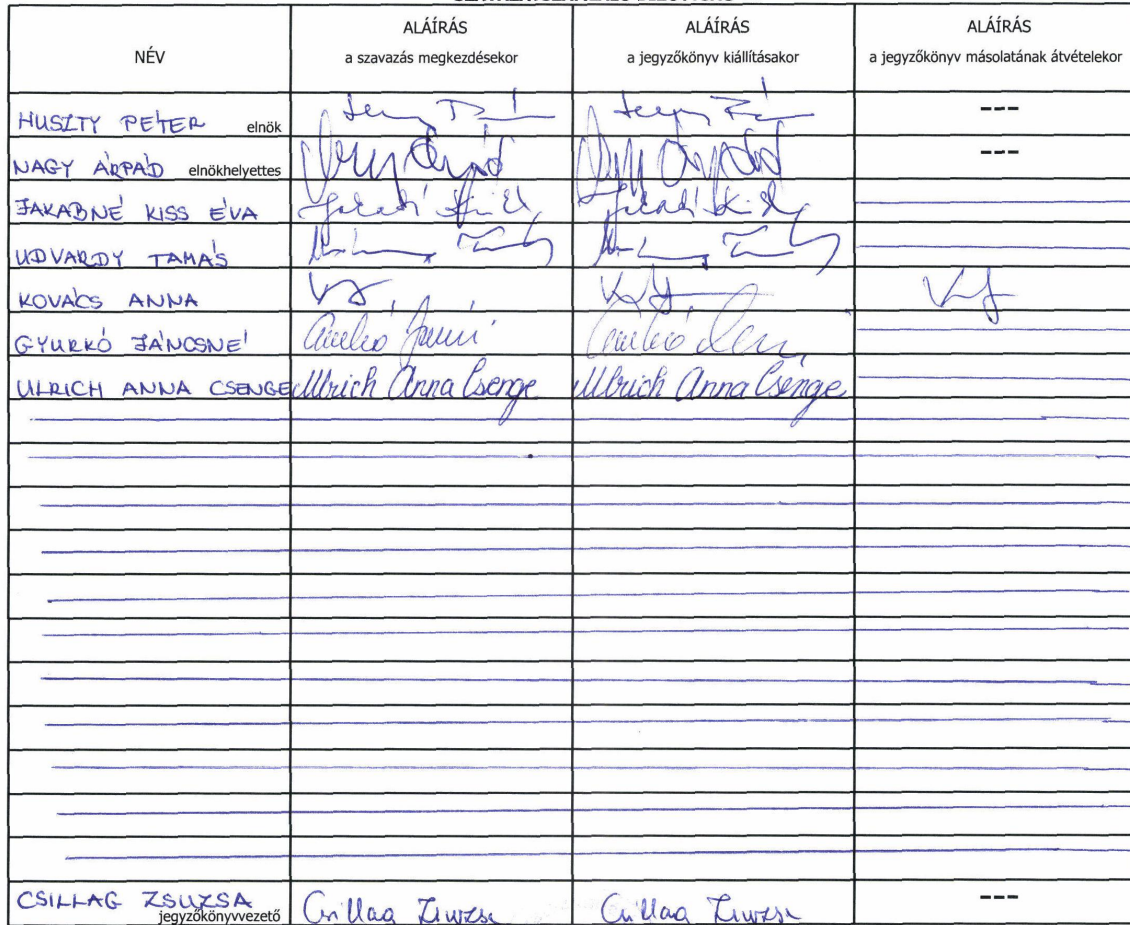 NÉV
ALÁÍRÁS
a szavazás megkezdésekor
ALÁÍRÁS
a jegyzőkönyv kiállításakor
ALÁÍRÁS
a jegyzőkönyv másolatának átvételekor
HUSZTY PÉTER elnök
---
NAGY ÁRPÁD elnökhelyettes
---
JAKABNÉ KISS ÉVA
UDVARDY TAMÁS
KOVÁCS ANNA
GYURKÓ JÁNOSNÉ
ULRICH ANNA CSENGE Ulrich Anna Csenge Ulrich Anna Csenge
CSILLAG ZSUZSA
jegyzőkönyvvezető
Csillag Zsuzsa Csillag Zsuzsa
---